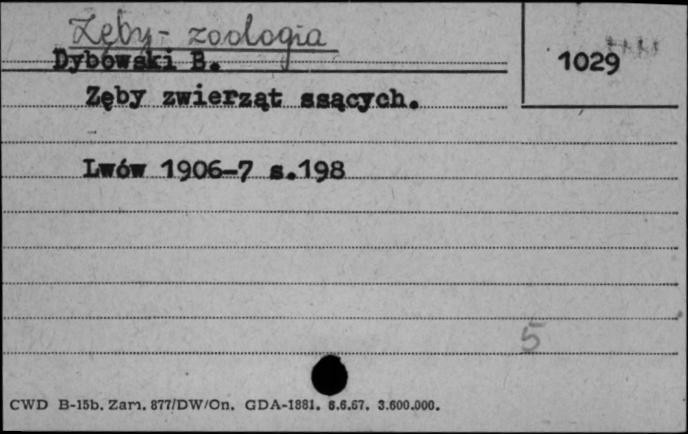 Zęby - zoologia
Dybowski B.
1029
Zęby zwierząt ssących.
Lwów 1906-7 s.198
5
CWD B-15b. Zam. 877/DW/On. GDA-1881. 6.6.67. 3.600.000.